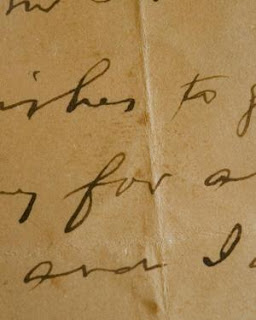 ishes to g
y for a
and I